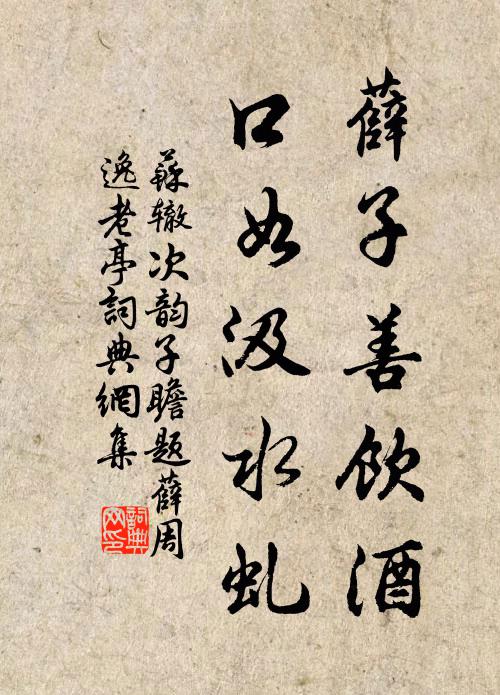 薛子善饮酒
口如汲水虬
蘇辙次韵子瞻题薛周
逸老亭詞典網集
詞典
网印